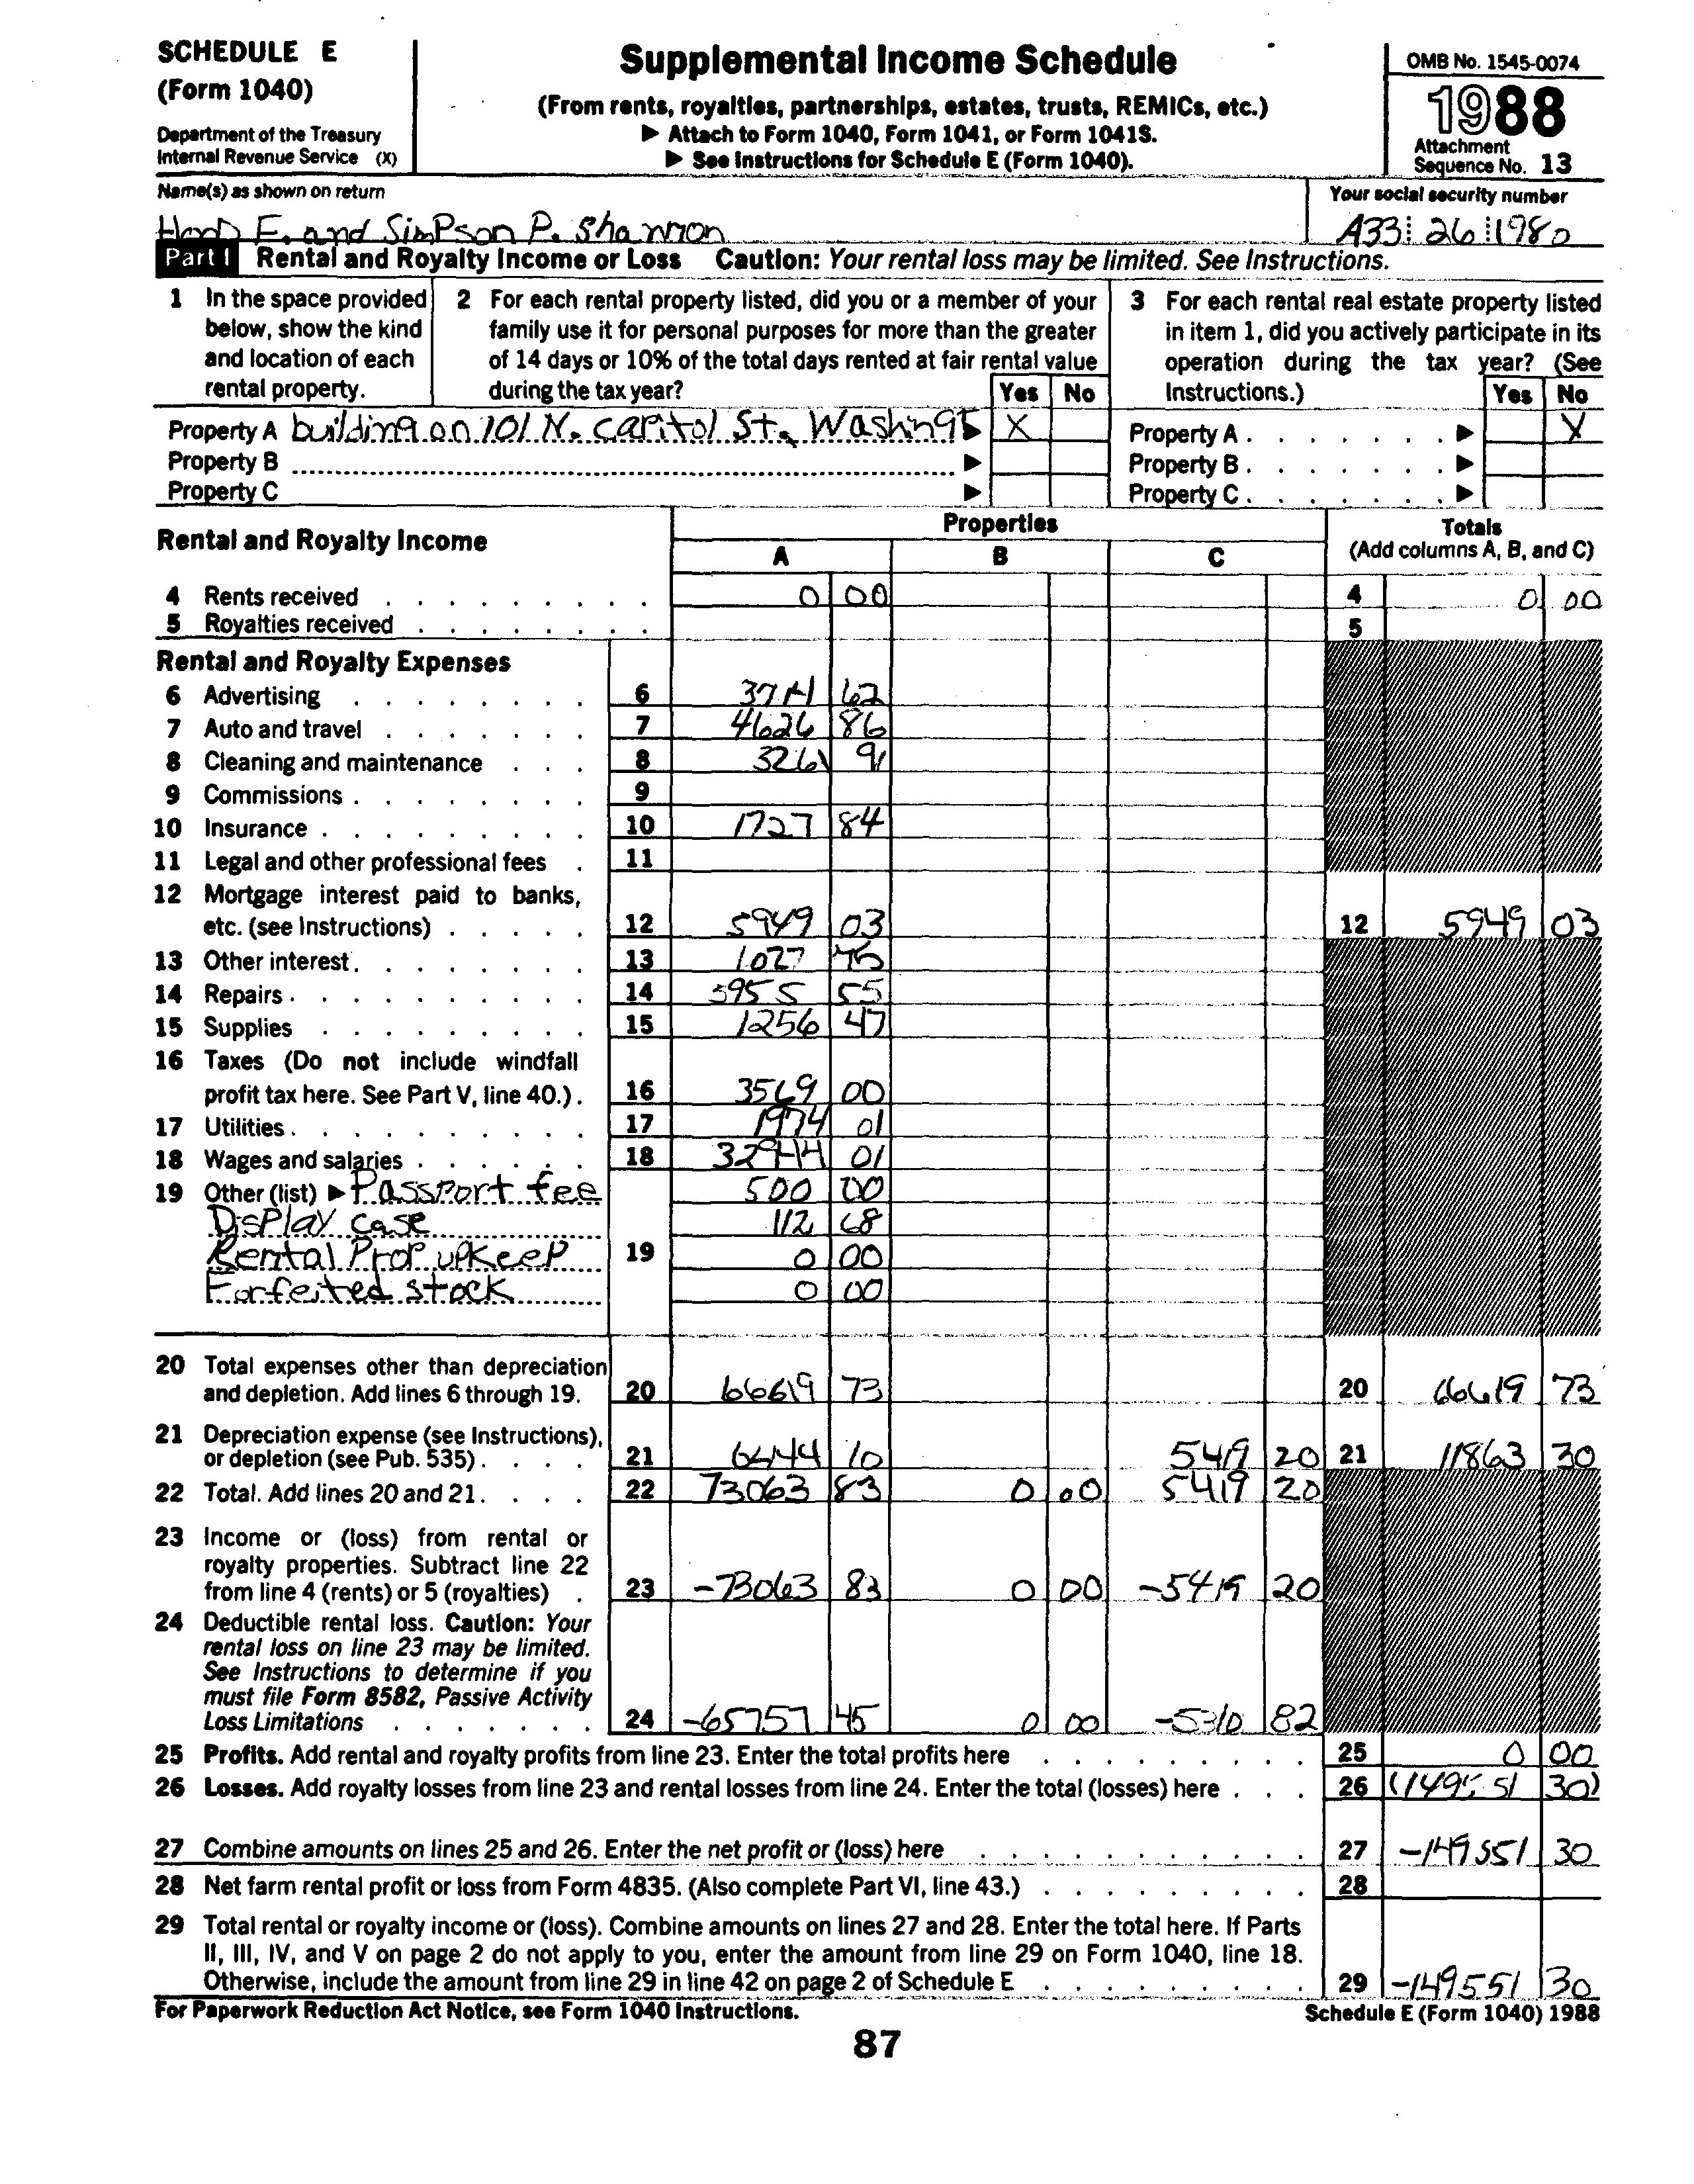 SCHEDULE E
(Form 1040)
Department of the Treasury
Internal Revenue Service (X)
Supplemental Income Schedule
(From rents, royalties, partnerships, estates, trusts, REMICs, etc.)
▶ Attach to Form 1040, Form 1041, or Form 1041S.
▶ See Instructions for Schedule E (Form 1040).
OMB No. 1545-0074
1988
Attachment
Sequence No. 13
Name(s) as shown on return
E. and Simpson P. Shannon
Your social security number
A33 26 1980
Part I Rental and Royalty Income or Loss Caution: Your rental loss may be limited. See Instructions.
1 In the space provided below, show the kind and location of each rental property.
2 For each rental property listed, did you or a member of your family use it for personal purposes for more than the greater of 14 days or 10% of the total days rented at fair rental value during the tax year?
Yes No
3 For each rental real estate property listed in item 1, did you actively participate in its operation during the tax year? (See Instructions.)
Yes No
Property A building on 101 N. capitol St., Washingt ▶ X
Property A ▶ X
Property B ▶
Property B ▶
Property C ▶
Property C ▶
Rental and Royalty Income
Properties
A B C
Totals
(Add columns A, B, and C)
4 Rents received 0 00 4 0 00
5 Royalties received 5
Rental and Royalty Expenses
6 Advertising 6 62
7 Auto and travel 7 4626 86
8 Cleaning and maintenance 8 3261 91
9 Commissions 9
10 Insurance 10 1727 84
11 Legal and other professional fees 11
12 Mortgage interest paid to banks,
etc. (see Instructions) 12 5949 03 12 5949 03
13 Other interest 13 1027 75
14 Repairs 14 5955 55
15 Supplies 15 1256 47
16 Taxes (Do not include windfall
profit tax here. See Part V, line 40.) 16 3569 00
17 Utilities 17 1974 01
18 Wages and salaries 18 32944 01
19 Other (list) ▶ Passport fee 500 00
Display case 112 68
Rental Prop upkeep 19 0 00
Forfeited stock 0 00
20 Total expenses other than depreciation
and depletion. Add lines 6 through 19. 20 66619 73 20 66619 73
21 Depreciation expense (see Instructions),
or depletion (see Pub. 535) 21 6444 10 5419 20 21 11863 30
22 Total. Add lines 20 and 21 22 73063 83 0 00 5419 20
23 Income or (loss) from rental or
royalty properties. Subtract line 22
from line 4 (rents) or 5 (royalties) 23 -73063 83 0 00 -5419 20
24 Deductible rental loss. Caution: Your
rental loss on line 23 may be limited.
See Instructions to determine if you
must file Form 8582, Passive Activity
Loss Limitations 24 -65757 45 0 00 -5310 82
25 Profits. Add rental and royalty profits from line 23. Enter the total profits here 25 0 00
26 Losses. Add royalty losses from line 23 and rental losses from line 24. Enter the total (losses) here 26 (149551 30)
27 Combine amounts on lines 25 and 26. Enter the net profit or (loss) here 27 -149551 30
28 Net farm rental profit or loss from Form 4835. (Also complete Part VI, line 43.) 28
29 Total rental or royalty income or (loss). Combine amounts on lines 27 and 28. Enter the total here. If Parts
II, III, IV, and V on page 2 do not apply to you, enter the amount from line 29 on Form 1040, line 18.
Otherwise, include the amount from line 29 in line 42 on page 2 of Schedule E 29 -149551 30
For Paperwork Reduction Act Notice, see Form 1040 Instructions.
Schedule E (Form 1040) 1988
87